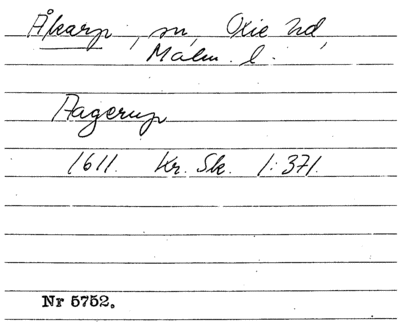 Åkarp, sn, Oxie hd,
Malm. l.
Aagerup
1611. Kr. Sk. 1:371.
Nr 5752.